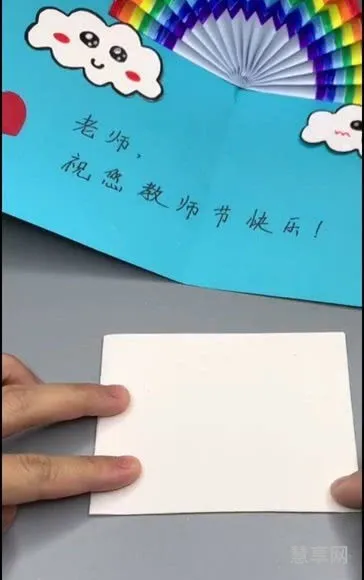 老师,
祝您教师节快乐!
慧享网